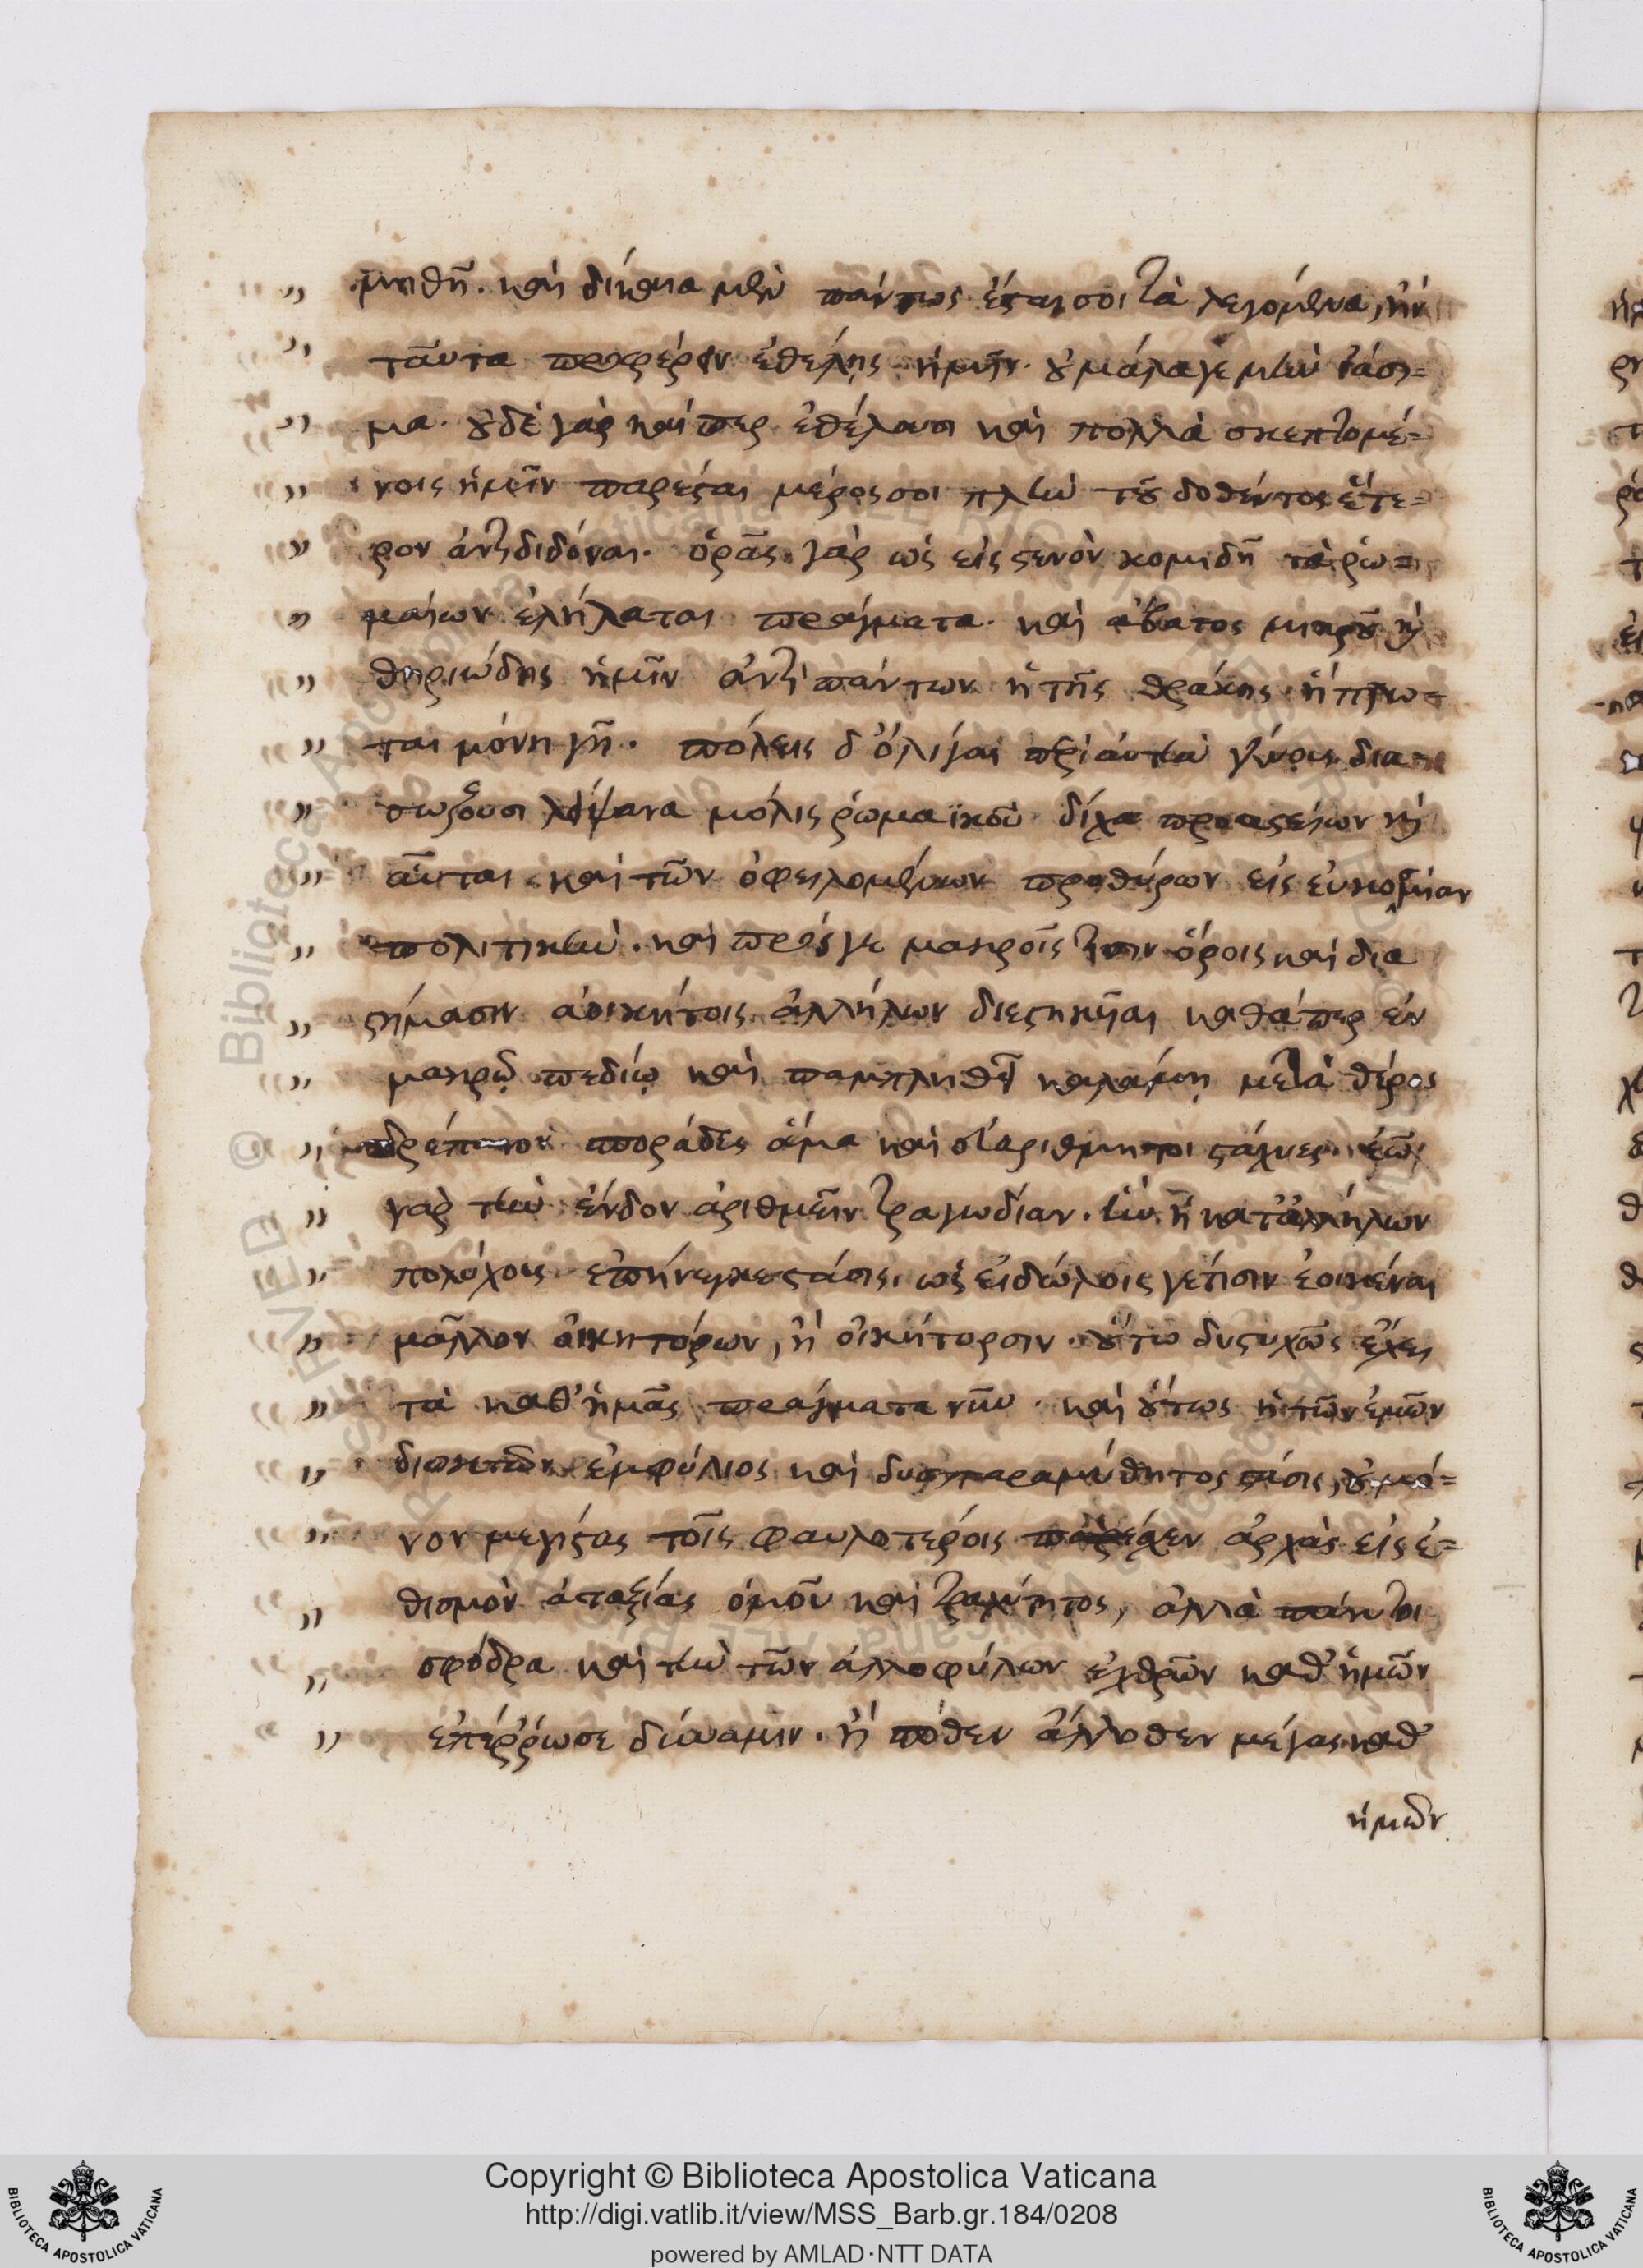 μηθῆ. καὶ δίκαια μὲν πάντως ἔσται σοι τὰ λεγόμενα, ἢν
ταῦτα προφέρειν ἐθέλῃς ἡμῖν. οὐ μάλα γε μὴν ἰάσι=
μα. οὐδὲ γὰρ καίπερ ἐθέλουσι καὶ πολλὰ σκεπτομέ=
νοις ἡμῖν παρέσται μέρος σοι πλὴν τοῦ δοθέντος ἕτε=
ρον ἀντιδιδόναι. ὁρᾷς γὰρ ὡς εἰς στενὸν κομιδῆ τὰ ῥω=
μαίων ἐλήλαται πράγματα. καὶ ἄβατος μικροῦ καὶ
θηριώδης ἡμῖν ἀντὶ πάντων ἡ τῆς θράκης
ται μόνη γῆ. πόλεις δ' ὀλίγαι περὶ αὐτὴν δια=
σώζουσι λείψανα μόλις ῥωμαϊκοῦ δίχα προαστείων καὶ
αὗται καὶ τῶν ὀφειλομένων προθύρων εἰς εὐκοσμίαν
πολιτικήν. καὶ πρός γε μακροῖς τισιν ὅροις καὶ δια
στήμασιν ἀοικήτοις ἀλλήλων διεστηκυῖαι καθάπερ ἐν
μακρῷ πεδίῳ καὶ παμπληθεῖ καλάμῃ μετὰ θέρος
σποράδες ἅμα καὶ εὐαρίθμητοι στάχυες. ἐῶ
γὰρ τὴν ἔνδον ἀριθμεῖν τραγωδίαν. ἣν ἡ κατ' ἀλλήλων
πολιούχοις ἐπήνεγκε στάσις, ὡς εἰδώλοις γέ τισιν ἐοικέναι
μᾶλλον οἰκητόρων, ἢ οἰκήτορσιν. οὕτω δυστυχῶς ἔχει
τὰ καθ' ἡμᾶς πράγματα νῦν. καὶ οὕτως ἡ τῶν ἐμῶν
διωκτῶν ἐμφύλιος καὶ δυσπαραμύθητος στάσις, οὐ μό=
νον μεγίστας τοῖς φαυλοτέροις παρεῖχεν ἀρχὰς εἰς ἐ=
θισμὸν ἀταξίας ὁμοῦ καὶ τραχύτητος, ἀλλὰ πάν τοι
σφόδρα καὶ τὴν τῶν ἀλλοφύλων ἐχθρῶν καθ' ἡμῶν
ἐπέρρωσε δύναμιν. ἢ πόθεν ἄλλοθεν μέγας καθ'
ἡμῶν
Copyright © Biblioteca Apostolica Vaticana
http://digi.vatlib.it/view/MSS_Barb.gr.184/0208
powered by AMLAD·NTT DATA
BIBLIOTECA APOSTOLICA VATICANA
BIBLIOTECA APOSTOLICA VATICANA